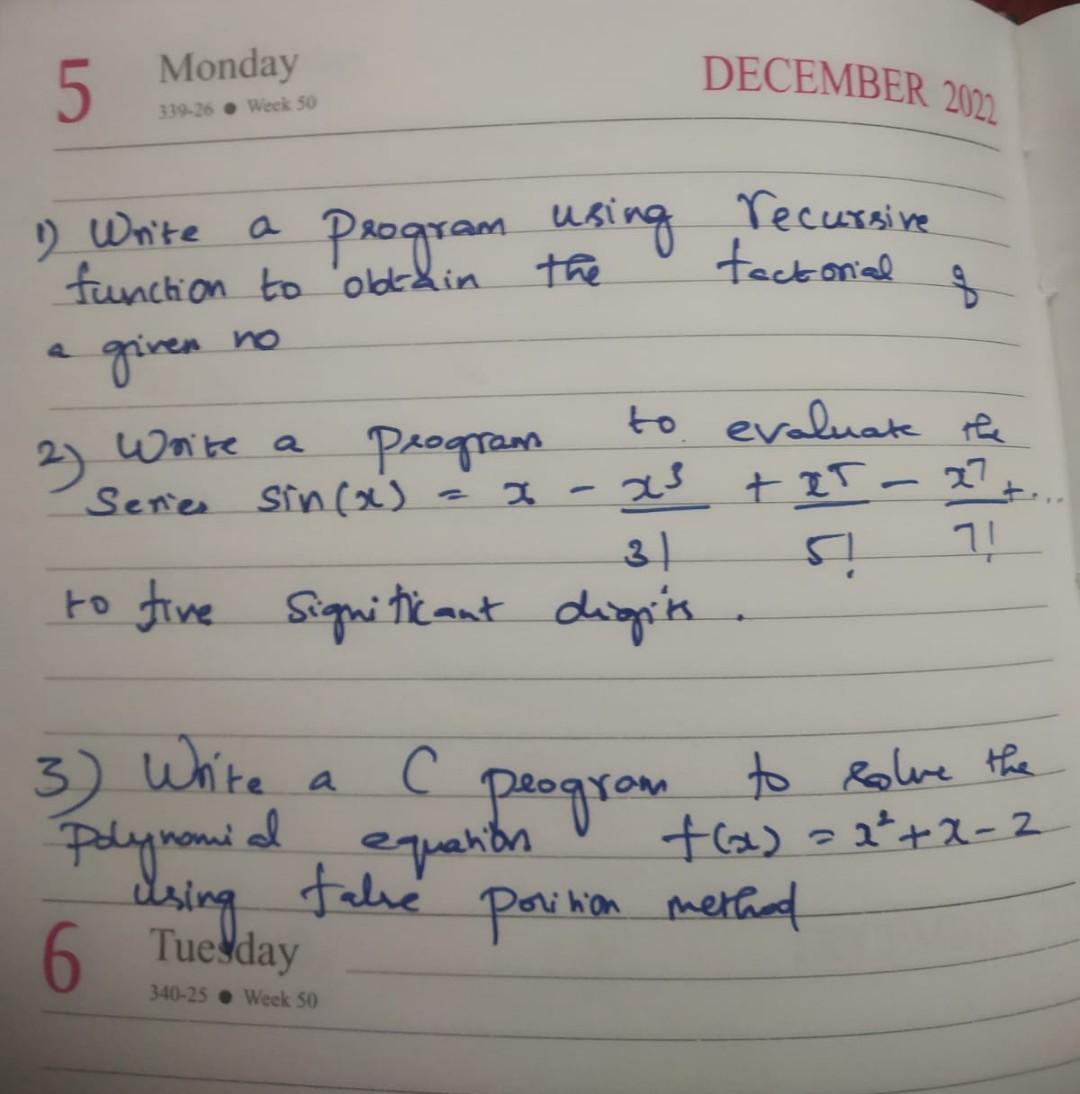 5 Monday DECEMBER 2022
339-26 ● Week 50
1) Write a program using recursive
function to obtain the factorial of
a given no
2) Write a program to evaluate the
Series sin(x) = x - x³/3! + x⁵/5! - x⁷/7! + ...
to five significant digits.
3) Write a C program to solve the
polynomial equation f(x) = x² + x - 2
using false position method
6 Tuesday
340-25 ● Week 50